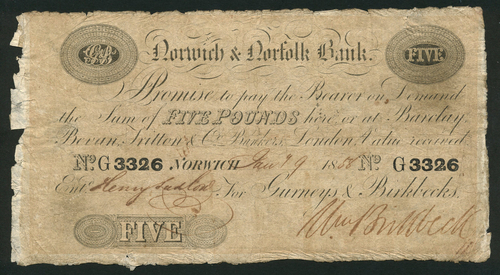 Norwich & Norfolk Bank.
FIVE
I Promise to pay the Bearer on Demand
the Sum of FIVE POUNDS here or at Barclay
Bevan, Tritton & Co. Bankers London Value received
No. G 3326 NORWICH 9 18 No. G 3326
Entd. Henry For Gurneys & Birkbecks.
FIVE Birkbeck